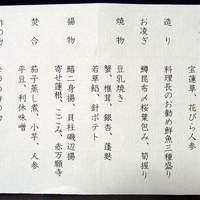 宝蓮草、花びら人参
造り
料理長のお勧め鮮魚三種盛り
お凌ぎ
鱒昆布〆桜葉包み、筍握り
焼物
豆乳焼き
蟹、椎茸、銀杏、蓬麩
若草餡、針ポテト
揚物
鱚二身揚、貝柱磯辺揚
寄せ蓮根、こごみ、赤万願寺
焚合
茄子蒸し煮、小芋、人参
平豆、利休味噌